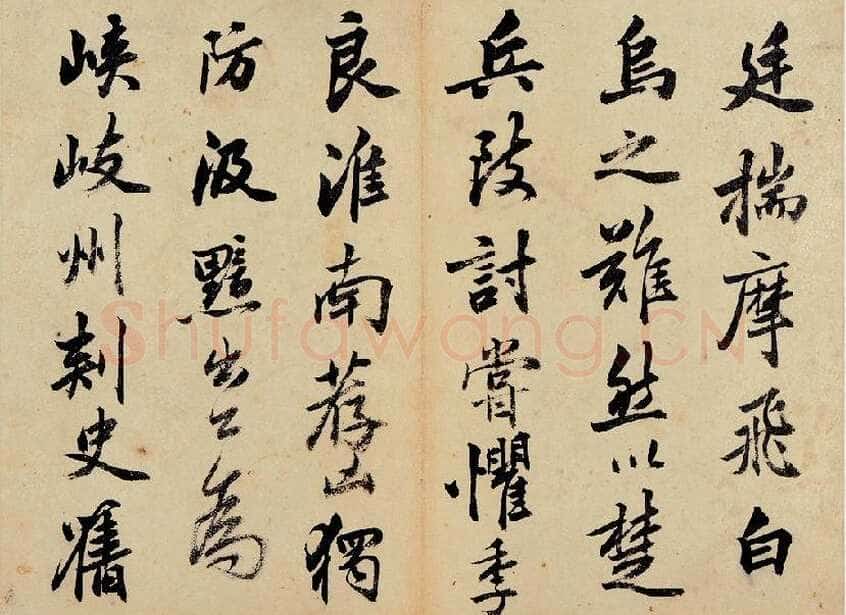 廷揣摩飛白
烏之難然以楚
兵討嘗懼季
良淮南荐山獨
防汲黯出公為
峽岐州刺史舊
Shufawang.CN